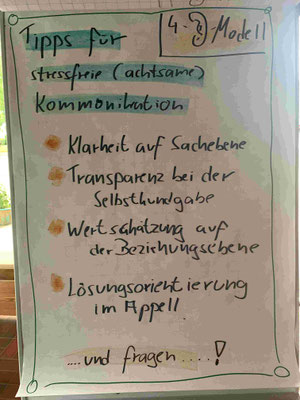 Tipps für
4-👂 Modell
stressfreie (achtsame)
Kommunikation
Klarheit auf Sachebene
Transparenz bei der
Selbstkundgabe
Wertschätzung auf
der Beziehungsebene
Lösungsorientierung
im Appell
....und fragen....!